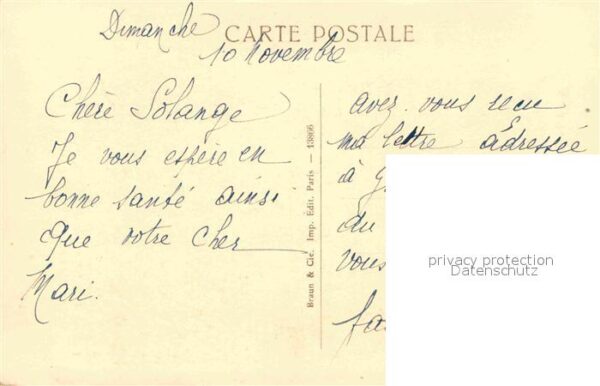 Dimanche
CARTE POSTALE
10 Novembre
Chère Solange
Je vous espère en
bonne santé ainsi
que votre cher
Mari.
Braun & Cie. Imp. Edit. Paris — 13866
avez vous recu
ma lettre adressée
à
du
vous
privacy protection
Datenschutz